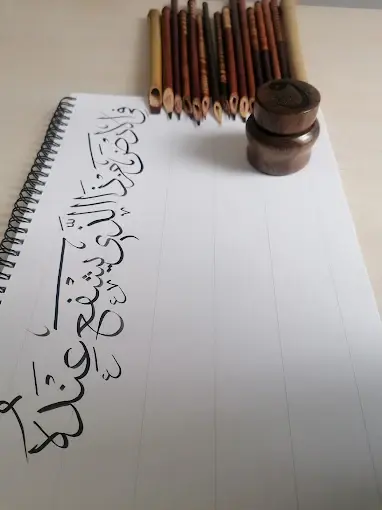 في الارض من ذا الذي يشفع عنده